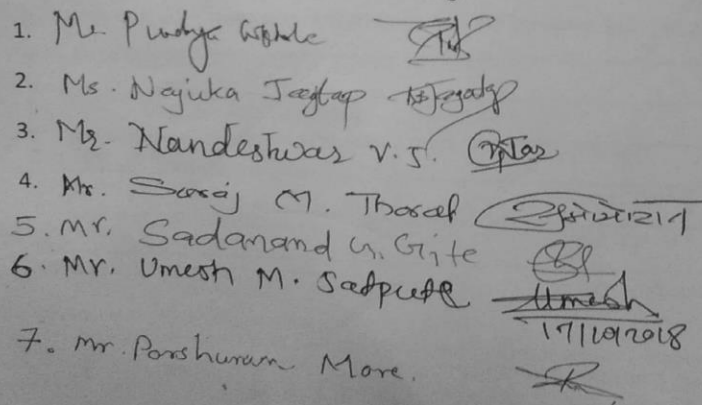 1. Mr. Pundya
2. Ms. Najuka Jagtap
3. Mr. Nandeshwar V.J.
4. Mr. Suraj M. Thorat
5. Mr. Sadanand G. Gite
6. Mr. Umesh M. Satpute Umesh
17/10/2018
7. Mr. Parshuram More.